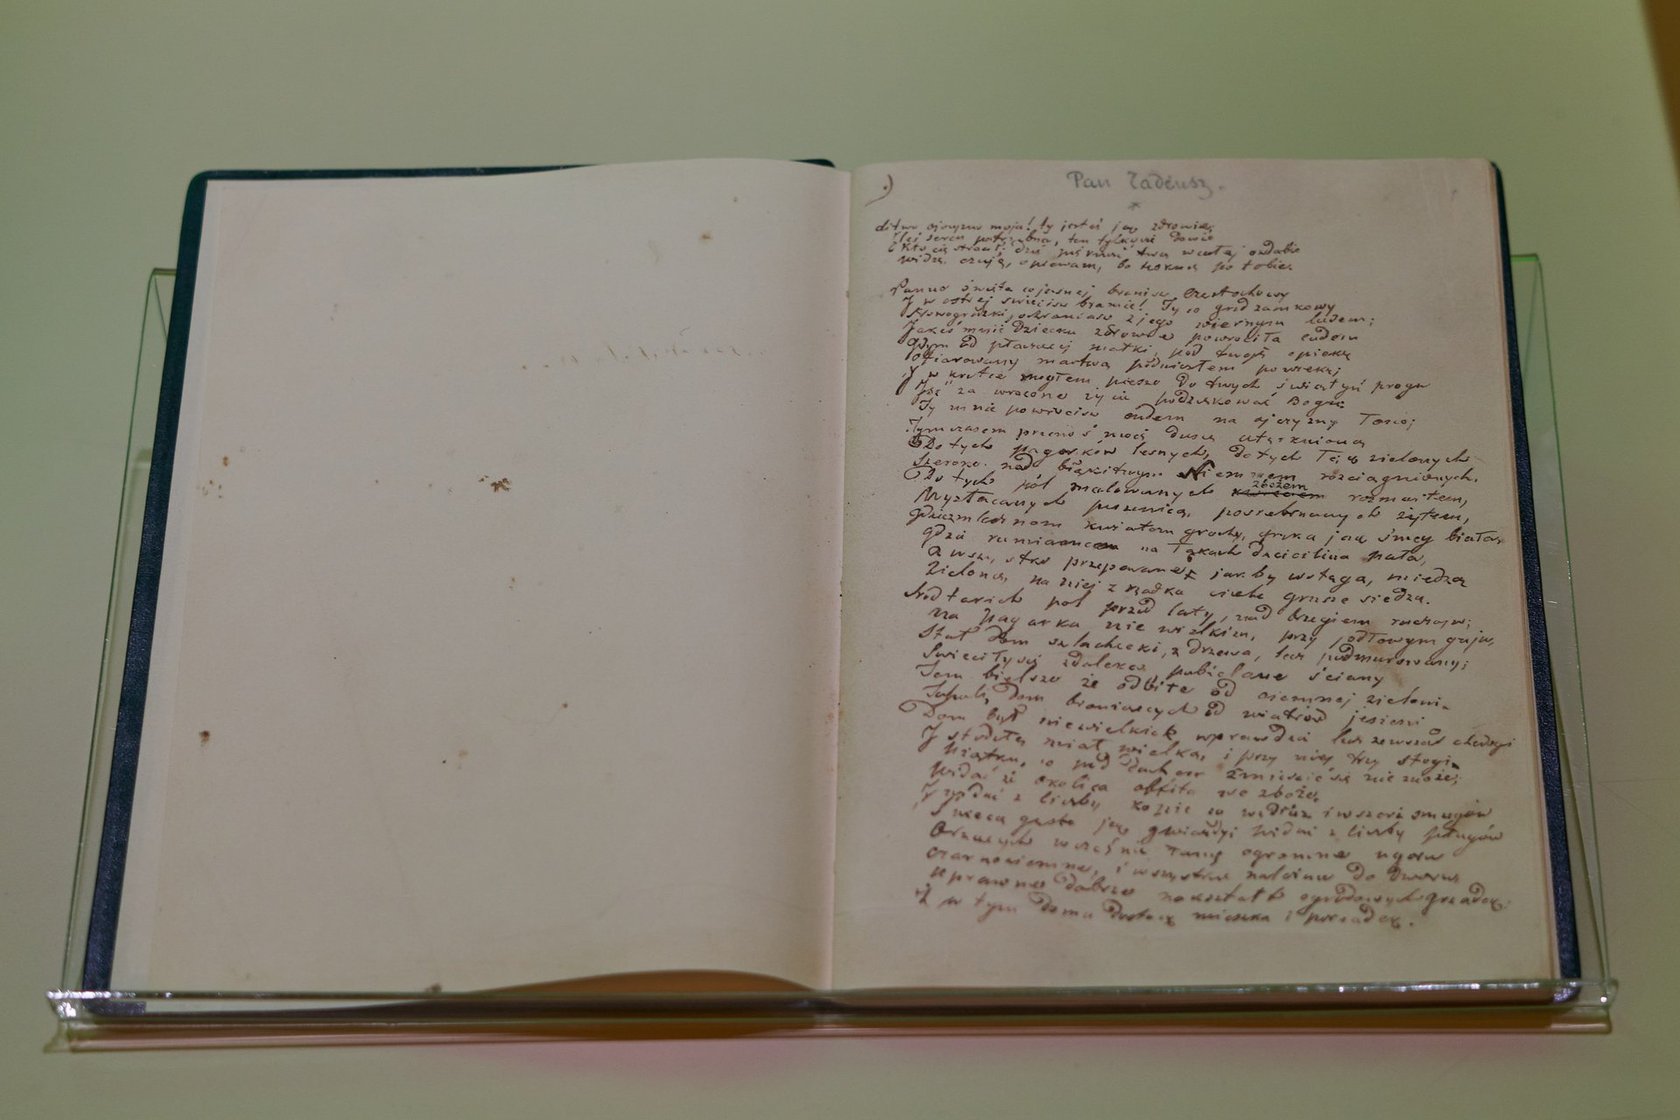 Pan Tadeusz.
Litwo ojczyzno moja! ty jesteś jak zdrowie,
Ileś serca potrzebna, ten tylko się dowie
Kto cię stracił; dziś piękność twą w całej ozdobie
widzę, czuję, opiewam, bo tęsknię po tobie.
Panno święta co jasnej bronisz Częstochowy
I w ostrej świecisz bramie! Ty co gród zamkowy
Nowogrodzki, ochraniasz z jego wiernym ludem;
Jakoś mnie dziecko zdrowie powróciła cudem
Gdym od płaczącej matki, pod twoją opiekę
Ofiarowany martwą podniosłem powiekę;
I w krotce mogłem pieszo do twych świątyń progu
Iść za wrócone życie podziękować Bogu
Ty mnie powrócisz cudem na ojczyzny łono;
Tymczasem przenoś moję duszą utęsknioną
Do tych pagórków leśnych, do tych łąk zielonych
Szeroko nad błękitnym Niemnem rozciągnionych.
Do tych pól malowanych zbożem rozmaitem,
Wyzłacanych pszenicą, posrebrzanych żytem,
gryka jak śnieg biała,
Gdzie rumiancem na łąkach dzięcielina pała,
A wszystko przepasane jakby wstęgą, miedzą
Zieloną, na niej z rzadka ciche grusze siedzą.
Sród takich pól przed laty, nad brzegiem ruczaju;
Na pagorku nie wielkim, przy jodłowym gaju,
Stał dom szlachecki, z drzewa, lecz podmurowany;
Swieciły się zdaleka pobielane ściany
Tem bielsze że odbite od ciemnej zieleni
Topoli, broniących od wiatrów jesieni
Dom był niewielki wprawdzie lecz zewsząd chędogi
I stodołę miał wielką, i przy niej trzy stogi
Użątku, co pod dachem zmieścić się nie może;
Widać że okolica obfita we zboże,
I widać z liczby kopic co wzdłuż i wszerz smugów
Swiecą gęsto jak gwiazdy; widać z liczby pługów
Orzących wcześnie łany ogromne ugoru
Czarnoziemne, i
Uprawne dobrze nakształt ogrodowych grządek:
I w tym domu dostatek mieszka i porządek.